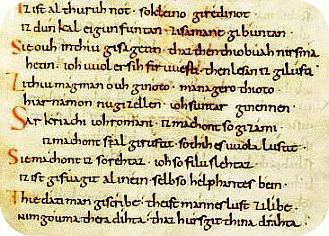 Iz ist al thuruh not · so kleino giredinot
iz dunkal eigun funtan · zisamane gibuntan ·
Sie ouh in thiu gisagetin · thaz then thio buah nirsma
hetin · ioh uuol er sih fir uuesti · then lesan iz gilusti ·
Zi thiu mag man ouh ginoto · managero thioto
hiar namon nu gizellen · ioh suntar ginennen ·
Sar kriachi ioh romani · iz machont so gizami
iz machont sie al girustit · so thih es uuola lustit ·
Sie machont iz so rehtaz · ioh so filu slehtaz
iz ist gifuagit al in ein · selb so helphantes bein ·
Thie dati man giscribe · theist mannes lust zi libe
nim gouma thera dihta · thaz hursgit thina drahta ·